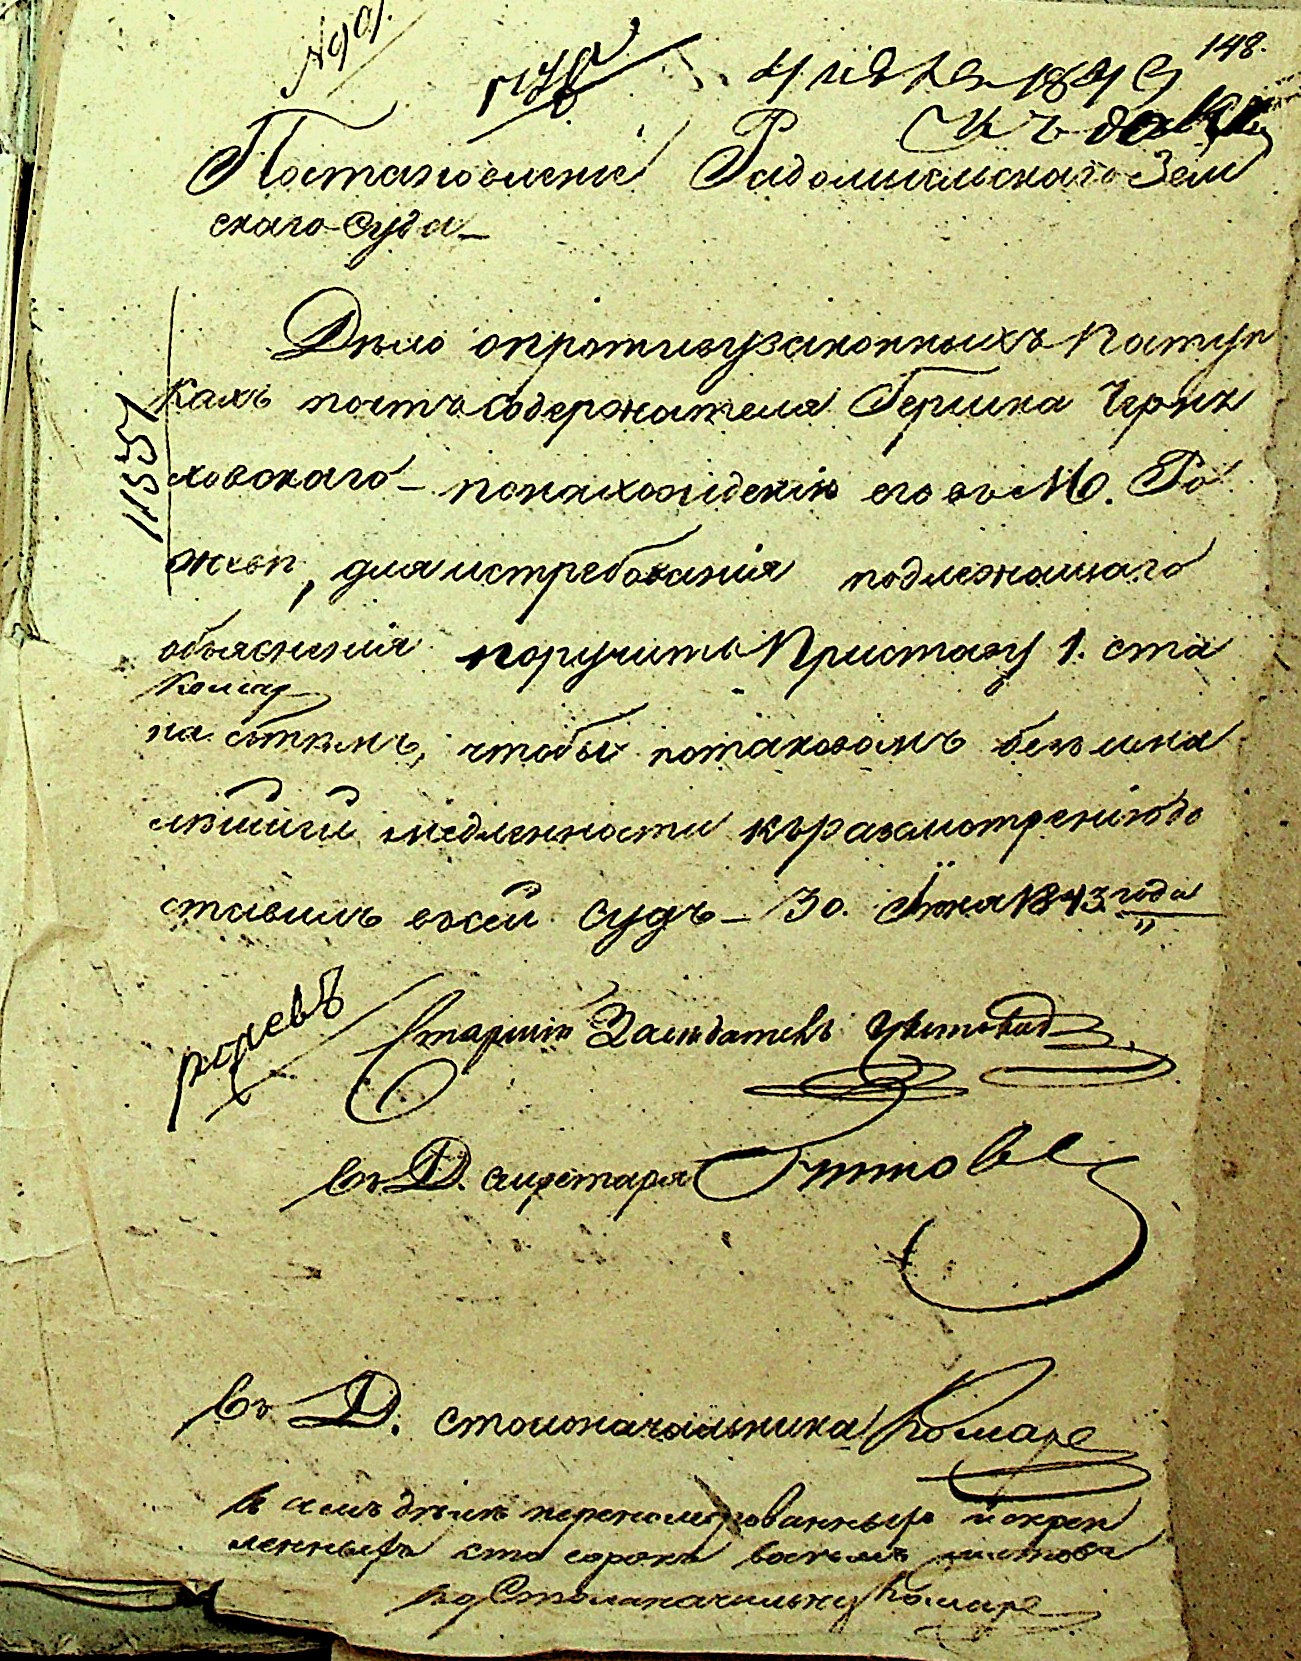 148.
Постановленіе Радомысльскаго Зем
скаго Суда
Дѣло опротивузаконныхъ поступ
кахъ почтъсодержателя Гершка Черня
ховскаго — понахожденію его въ М. Ро
жевѣ, для истребованія подлежащаго
объясненія поручить Приставу 1. ста
на стѣмъ, чтобы потаковомъ безъ мал
ѣйшей медленности къразсмотренію до
ставилъ въсей Судъ — 30. Іюня 1843 года
11551
Старшій Засѣдатель
въ Д. секретаря
въ Д. столоначальника Комаре
въ семъ дѣлѣ перенумерованныхъ искреп
ленныхъ сто сорокъ восемь листовъ
Столоначальник Комаре